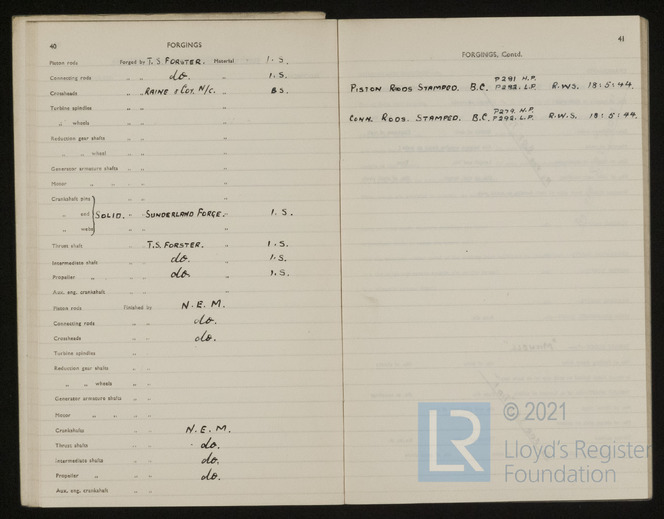 40
FORGINGS
Piston rods Forged by T. S. FORSTER. Material I. S.
Connecting rods " " do. " I. S.
Crossheads " " RAINE & COY. N/C. " B S.
Turbine spindles " " "
" wheels " " "
Reduction gear shafts " " "
" " wheel " " "
Generator armature shafts " " "
Motor " " " " "
Crankshaft pins " "
" and SOLID. " SUNDERLAND FORGE. " I. S.
" webs " "
Thrust shaft " T.S. FORSTER. " I. S.
Intermediate shaft " do. " I. S.
Propeller " " do " I. S.
Aux. eng. crankshaft " " "
Piston rods Finished by N. E. M.
Connecting rods " " do.
Crossheads " " do.
Turbine spindles " "
Reduction gear shafts " "
" " wheels " "
Generator armature shafts " "
Motor " " " "
Crankshafts " " N. E. M.
Thrust shafts " " do.
Intermediate shafts " " do.
Propeller " " " do.
Aux. eng. crankshaft " "
41
FORGINGS, Contd.
P291 H.P.
PISTON RODS STAMPED. B.C. P292. L.P. R.W.S. 18:5:44.
P279. H.P.
CONN. RODS. STAMPED. B.C. P292. L.P. R.W.S. 18:5:44.
LR
© 2021
Lloyd's Register
Foundation